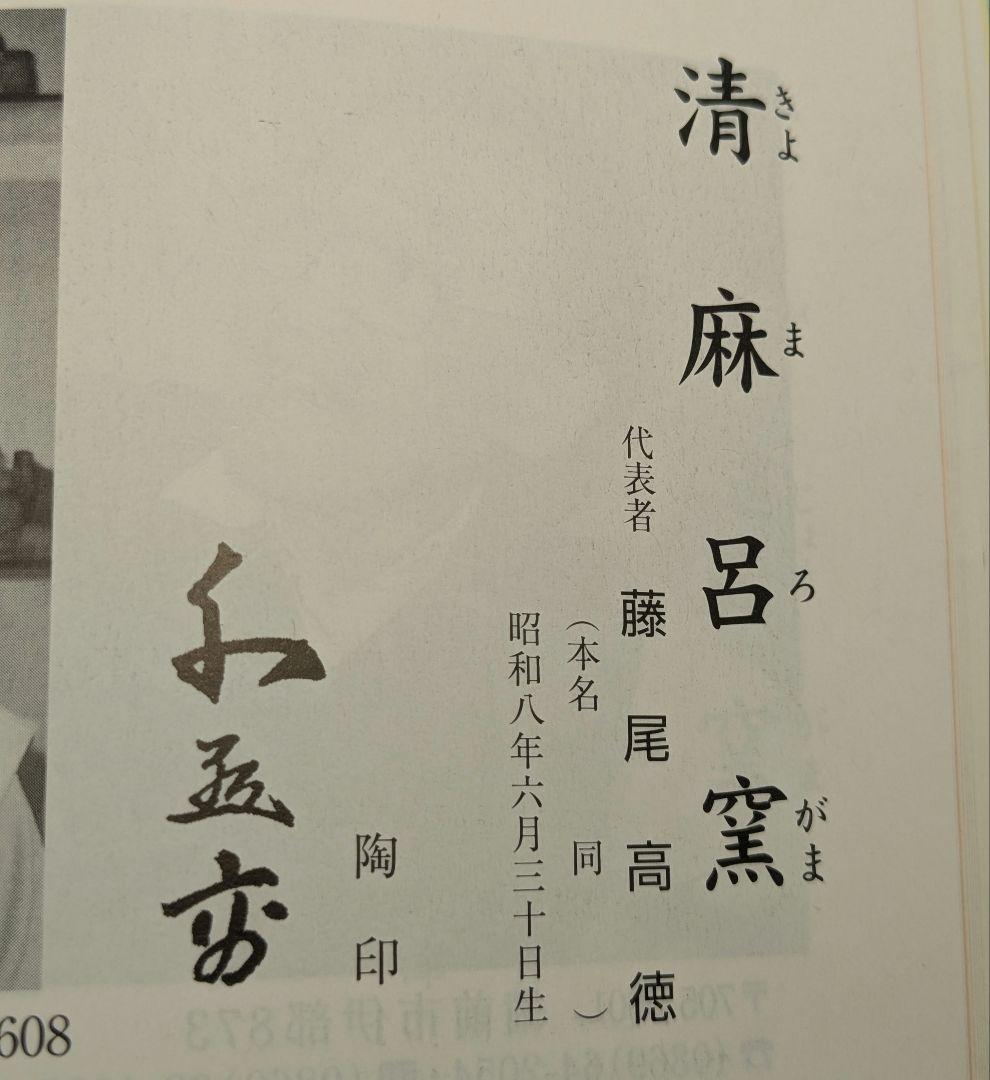 きよまろがま
清麻呂窯
代表者 藤尾高徳
（本名 同）
昭和八年六月三十日生
陶印
608